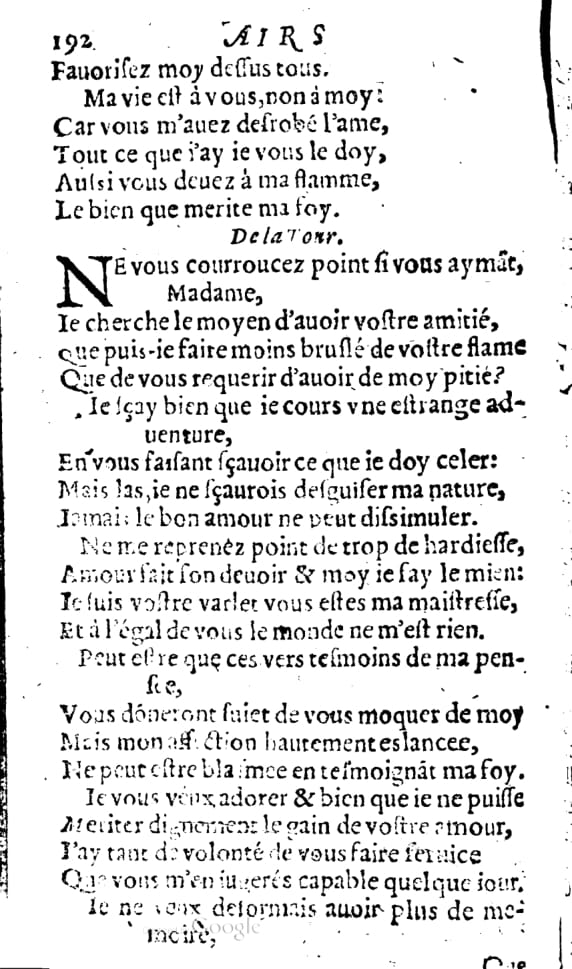 192 AIRS
Fauoriſez moy deſſus tous.
Ma vie eſt à vous, non à moy:
Car vous m'auez deſrobé l'ame,
Tout ce que i'ay ie vous le doy,
Auſsi vous deuez à ma flamme,
Le bien que merite ma foy.
De la Tour.
NE vous courroucez point ſi vous aymãt,
Madame,
Ie cherche le moyen d'auoir voſtre amitié,
Que puis-ie faire moins bruſlé de voſtre flame
Que de vous requerir d'auoir de moy pitié?
Ie ſçay bien que ie cours vne eſtrange ad-
uenture,
En vous faiſant ſçauoir ce que ie doy celer:
Mais las, ie ne ſçaurois deſguiſer ma nature,
Iamais le bon amour ne peut diſsimuler.
Ne me reprenez point de trop de hardieſſe,
Amour fait ſon deuoir & moy ie fay le mien:
Ie ſuis voſtre varlet vous eſtes ma maiſtreſſe,
Et à l'égal de vous le monde ne m'eſt rien.
Peut eſtre que ces vers teſmoins de ma pen-
ſée,
Vous dõneront ſuiet de vous moquer de moy
Mais mon affection hautement eslancee,
Ne peut eſtre blaſmee en teſmoignãt ma foy.
Ie vous veux adorer & bien que ie ne puiſſe
Meriter dignement le gain de voſtre amour,
I'ay tant de volonté de vous faire ſeruice
Que vous m'en iugerés capable quelque iour.
Ie ne veux deſormais auoir plus de me-
moire,
Google
Que